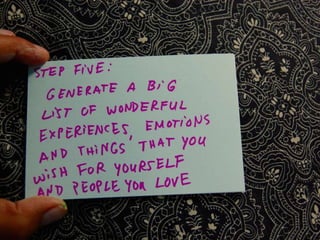 STEP FIVE:
GENERATE A BiG
LIST OF WONDERFUL
EXPERIENCES, EMOTIONS
AND THiNGS THAT YOU
WiSH FOR YOURSELF
AND PEOPLE YOU LOVE